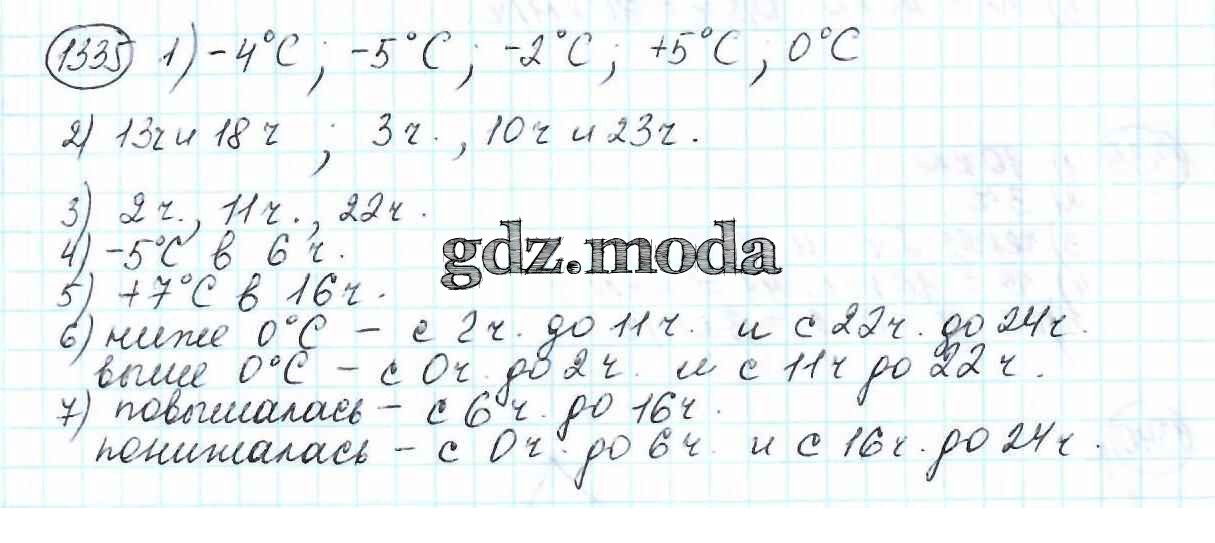 1335 1) -4°C ; -5°C ; -2°C ; +5°C ; 0°C
2) 13ч и 18 ч ; 3 ч. , 10ч и 23ч.
3) 2 ч. , 11 ч. , 22ч.
4) -5°C в 6 ч.
gdz.moda
5) +7°C в 16 ч.
6) ниже 0°C – с 2 ч. до 11 ч. и с 22ч. до 24ч.
выше 0°C – с 0ч. до 2 ч. и с 11ч до 22 ч.
7) повышалась – с 6 ч. до 16 ч.
понижалась – с 0ч. до 6 ч. и с 16 ч. до 24 ч.